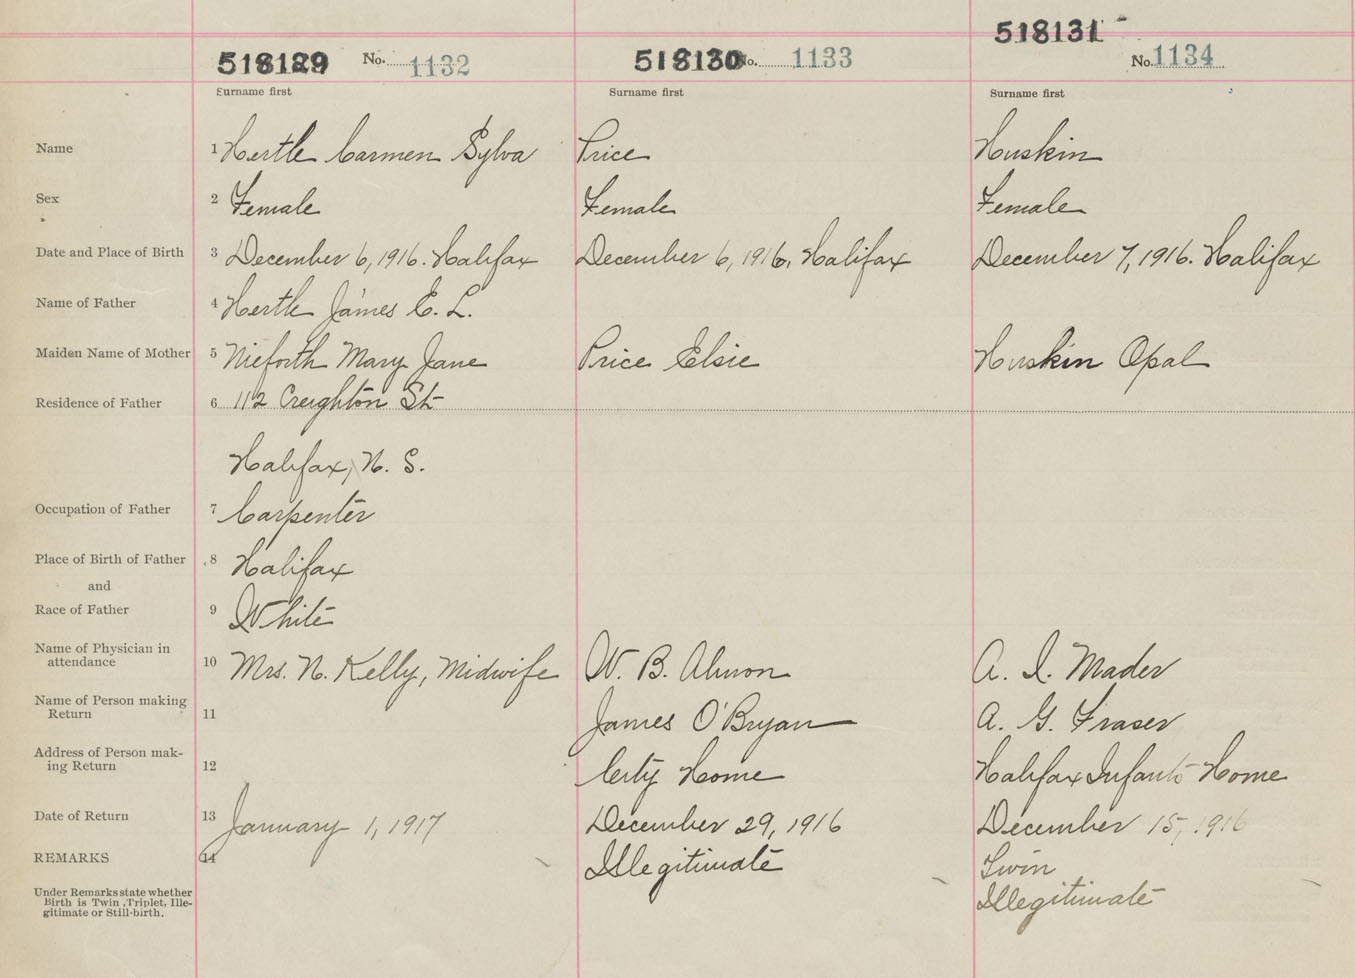 518129 No. 1132 518130 No. 1133 518131 No. 1134
Surname first Surname first Surname first
Name 1 Hertle Carmen Sylva Price Huskin
Sex 2 Female Female Female
Date and Place of Birth 3 December 6, 1916. Halifax December 6, 1916. Halifax December 7, 1916. Halifax
Name of Father 4 Hertle James E. L.
Maiden Name of Mother 5 Nieforth Mary Jane Price Elsie Huskin Opal
Residence of Father 6 112 Creighton St
Halifax, N. S.
Occupation of Father 7 Carpenter
Place of Birth of Father 8 Halifax
and
Race of Father 9 White
Name of Physician in
attendance 10 Mrs. N. Kelly, Midwife W. B. Almon A. I. Mader
Name of Person making
Return 11 James O'Bryan A. G. Fraser
Address of Person mak-
ing Return 12 City Home Halifax Infants Home
Date of Return 13 January 1, 1917 December 29, 1916 December 15, 1916
REMARKS 14 Illegitimate Twin
Illegitimate
Under Remarks state whether
Birth is Twin, Triplet, Ille-
gitimate or Still-birth.